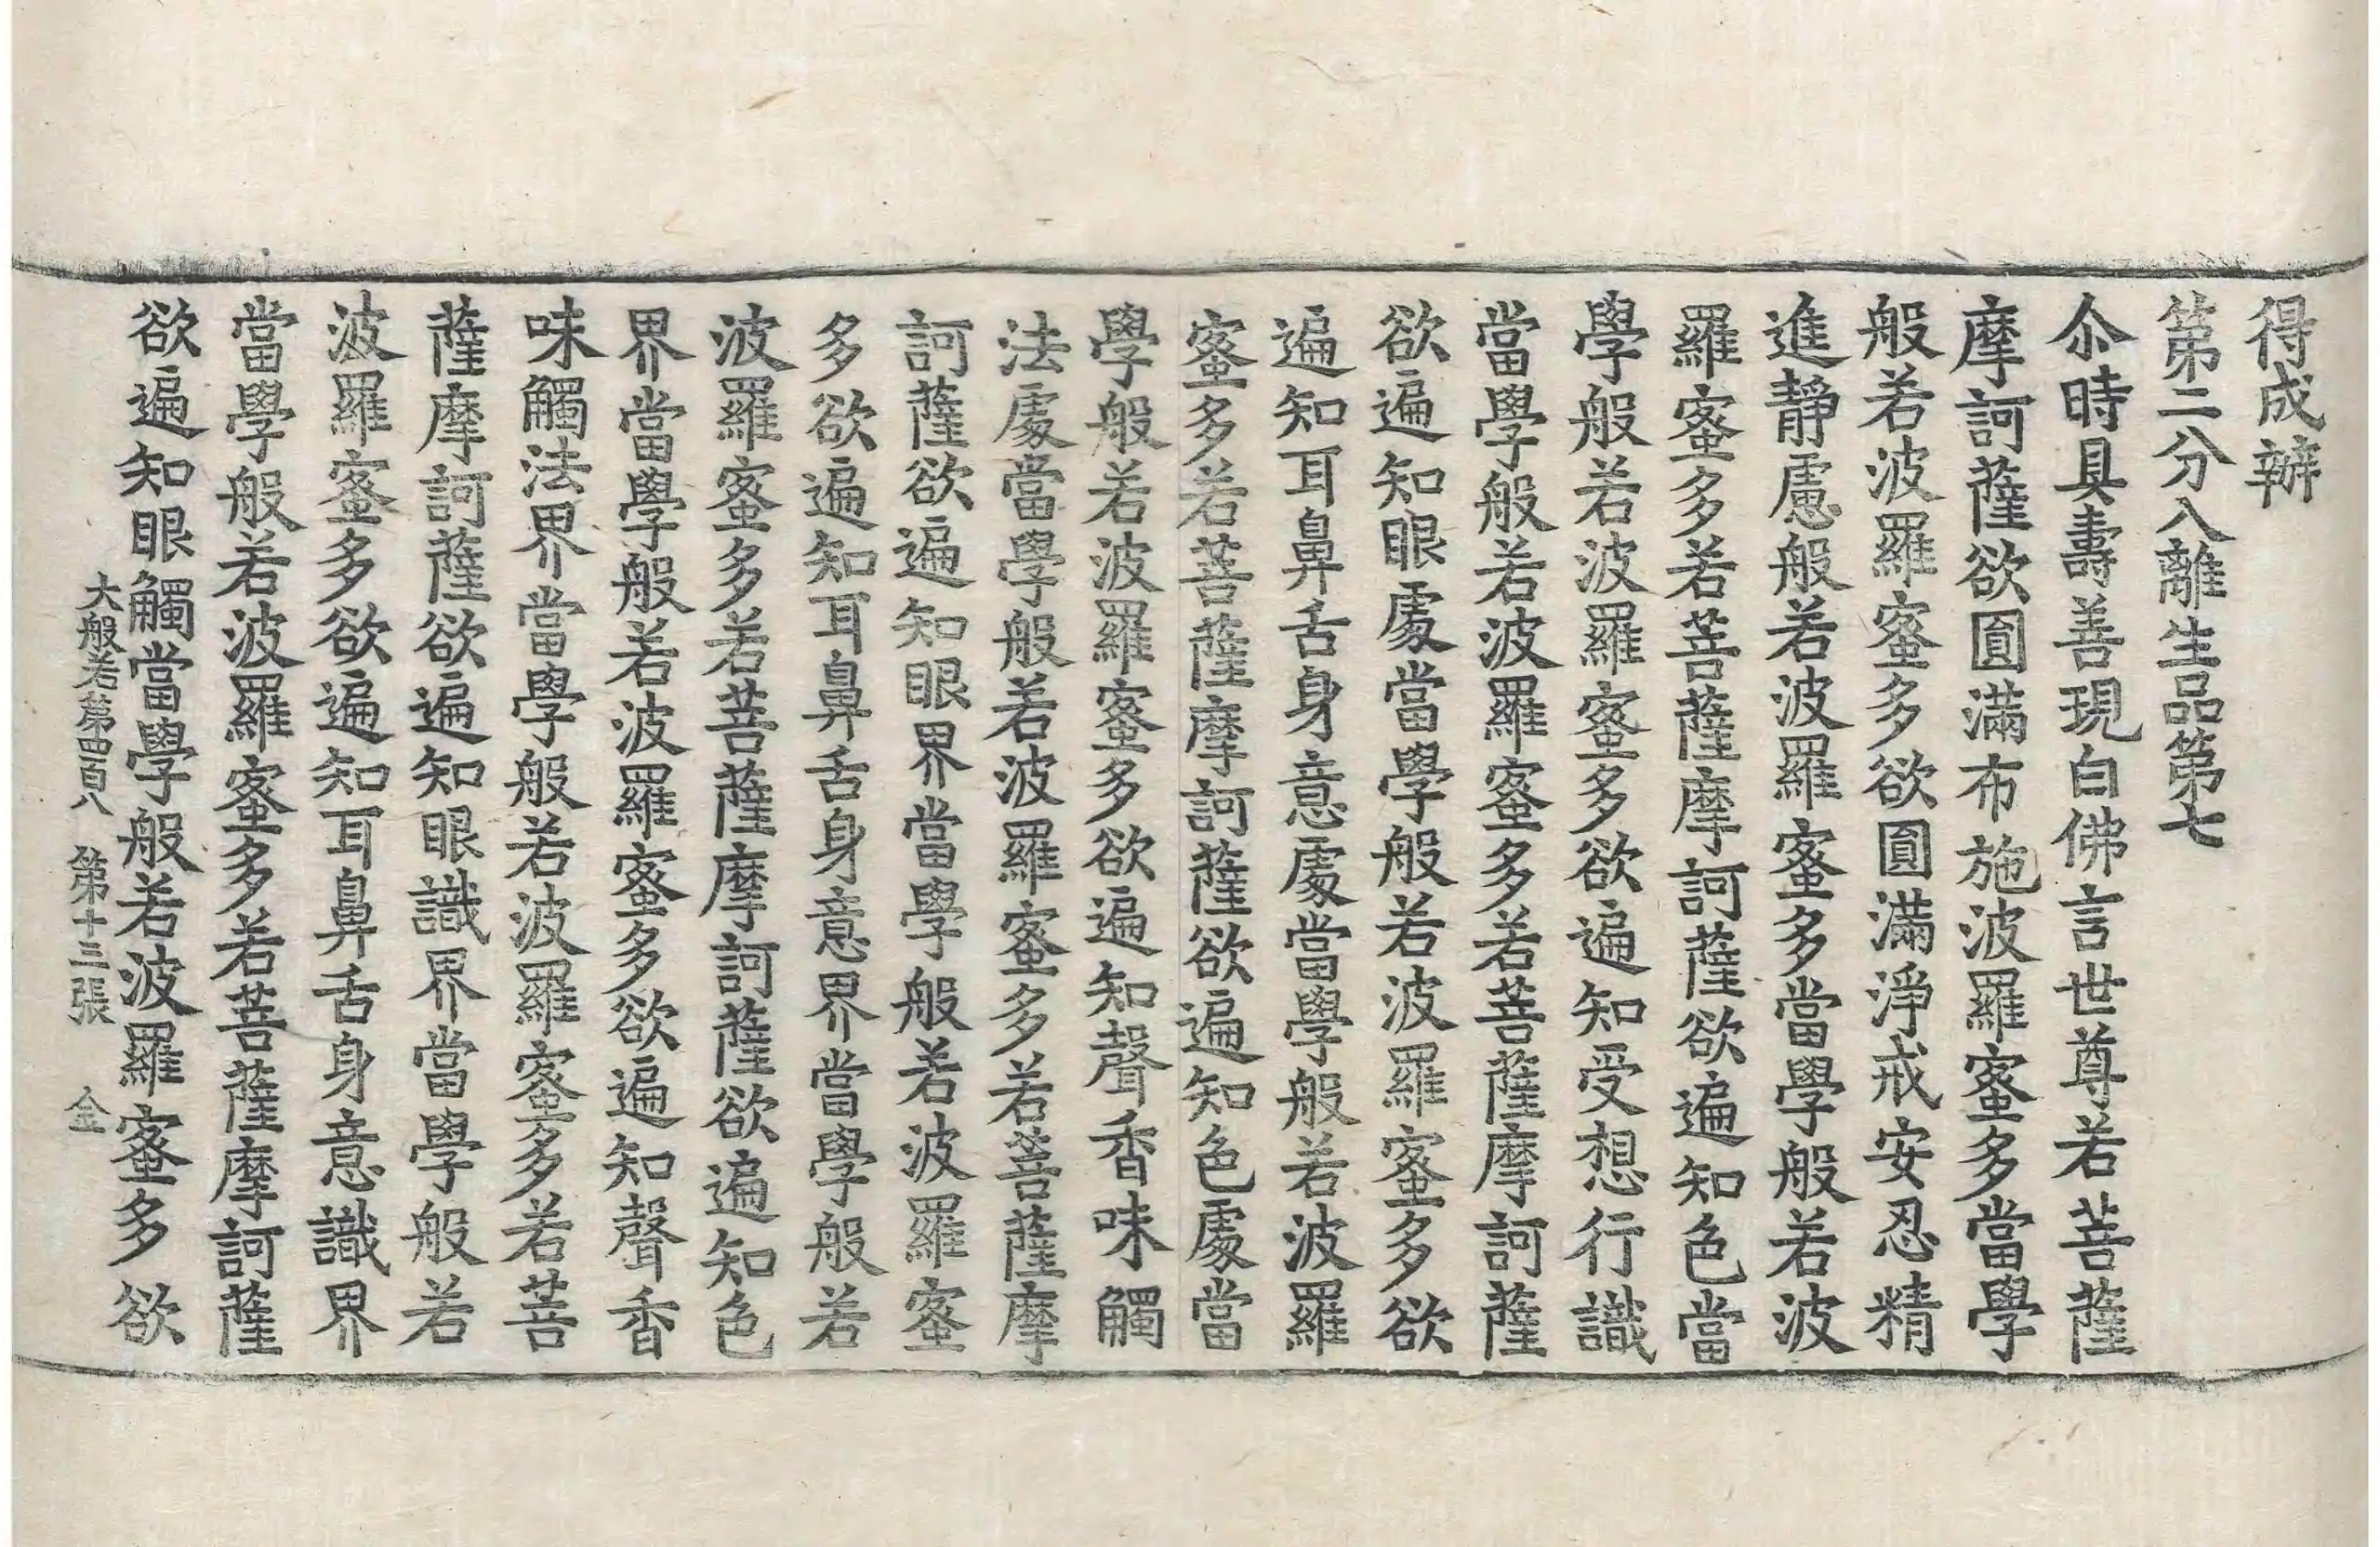 得成辦
第二分入離生品第七
尒時具壽善現白佛言世尊若菩薩
摩訶薩欲圓滿布施波羅蜜多當學
般若波羅蜜多欲圓滿淨戒安忍精
進靜慮般若波羅蜜多當學般若波
羅蜜多若菩薩摩訶薩欲遍知色當
學般若波羅蜜多欲遍知受想行識
當學般若波羅蜜多若菩薩摩訶薩
欲遍知眼處當學般若波羅蜜多欲
遍知耳鼻舌身意處當學般若波羅
蜜多若菩薩摩訶薩欲遍知色處當
學般若波羅蜜多欲遍知聲香味觸
法處當學般若波羅蜜多若菩薩摩
訶薩欲遍知眼界當學般若波羅蜜
多欲遍知耳鼻舌身意界當學般若
波羅蜜多若菩薩摩訶薩欲遍知色
界當學般若波羅蜜多欲遍知聲香
味觸法界當學般若波羅蜜多若菩
薩摩訶薩欲遍知眼識界當學般若
波羅蜜多欲遍知耳鼻舌身意識界
當學般若波羅蜜多若菩薩摩訶薩
欲遍知眼觸當學般若波羅蜜多欲
大般若第四百八 第十三張 金